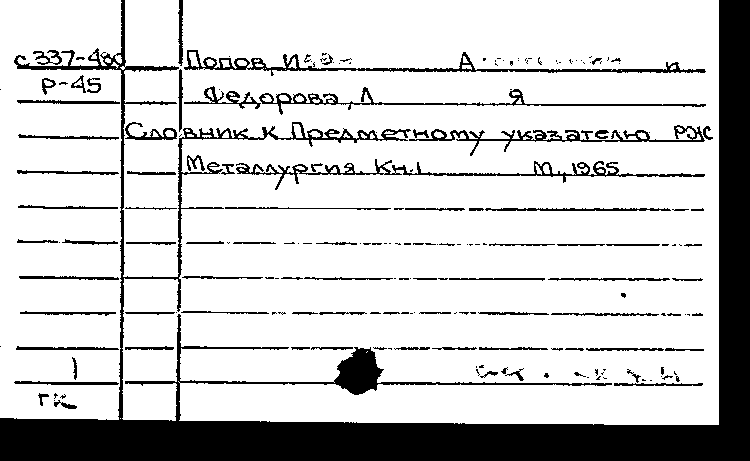 с337-480 Попов, А
Р-45 Федорова, Л Я
Словник к Предметному указателю РЖ
Металлургия. Кн.1 М., 1965
1
ГК